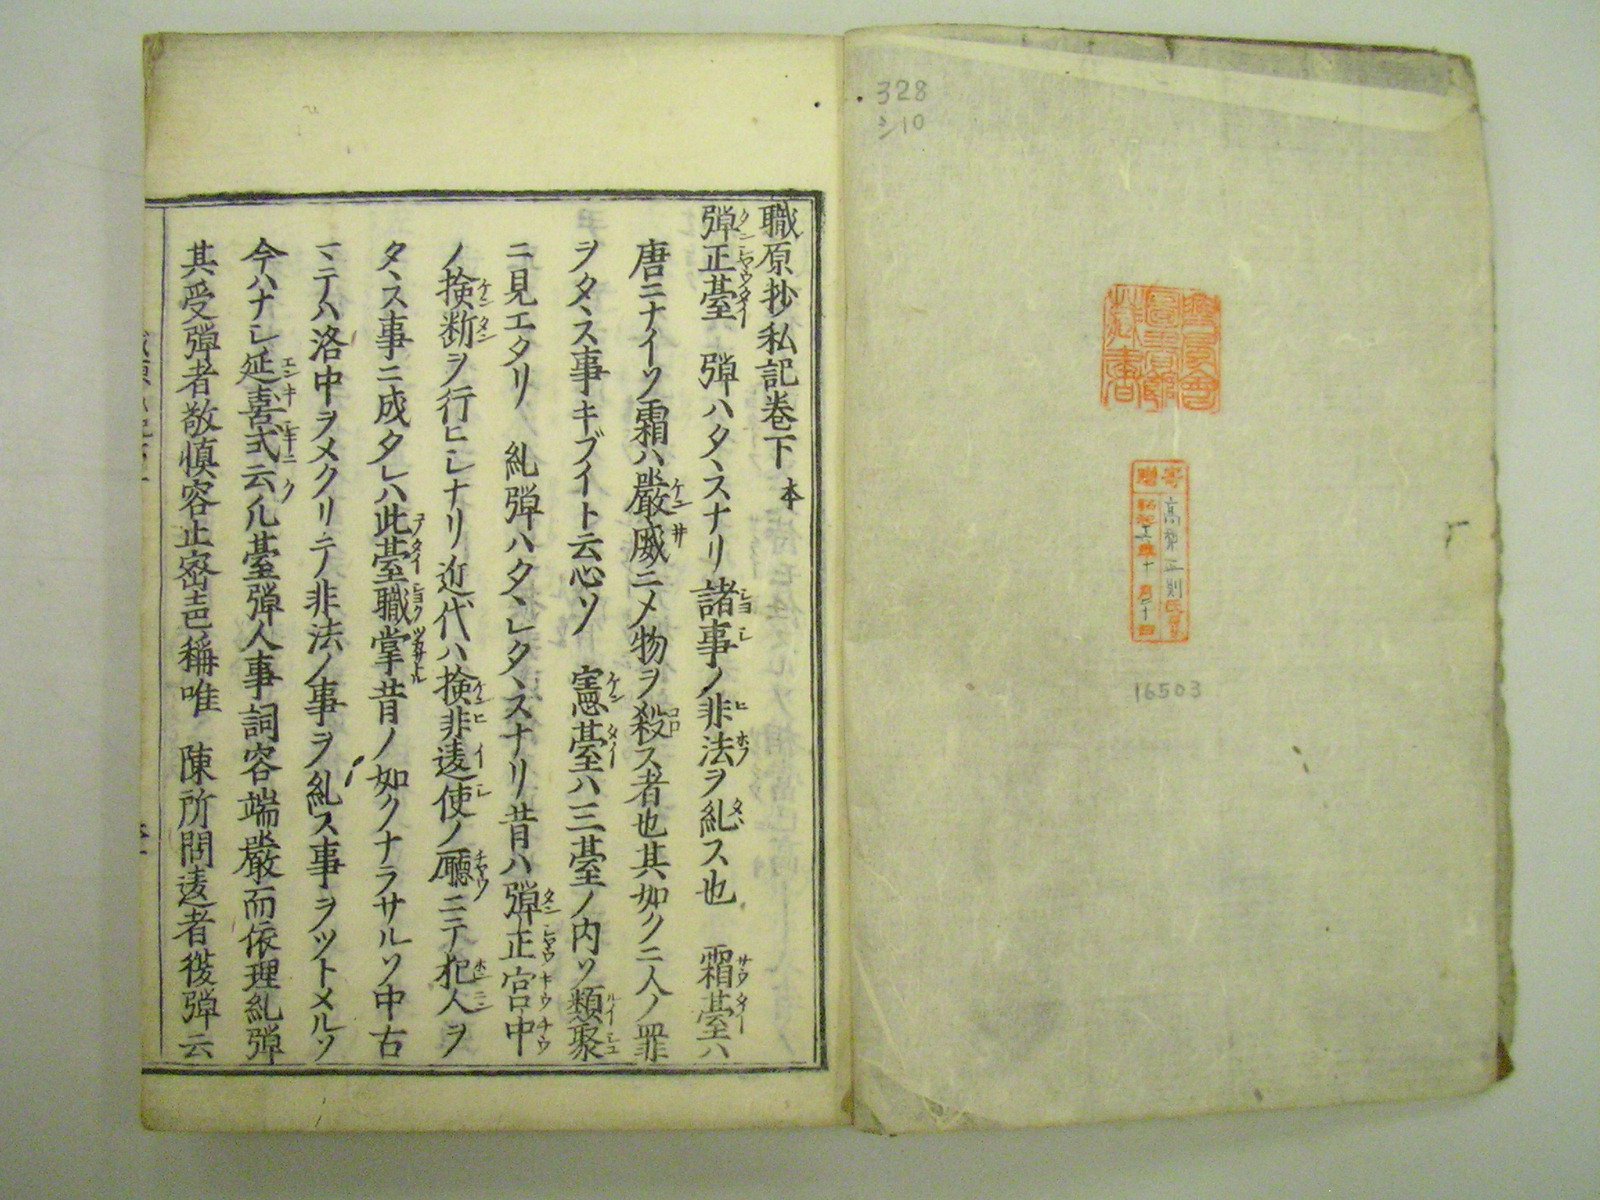 328
ミ/10
寄贈
16503
職原抄私記巻下本
弾正䑓 弾ハタヽスナリ諸事ノ非法ヲ糺ス也 霜䑓ハ
唐ニナイソ霜ハ嚴威ニメ物ヲ殺ス者也其如クニ人ノ罪
ヲタヽス事キブイト云心ソ 憲䑓ハ三䑓ノ内ソ類聚
ニ見エタリ 糺弾ハタヽシタヽスナリ昔ハ弾正宮中
ノ検断ヲ行ヒシナリ近代ハ検非違使ノ廳ニテ犯人ヲ
タヽス事ニ成タレハ此䑓職掌昔ノ如クナラサルソ中古
マテハ洛中ヲメクリテ非法ノ事ヲ糺ス事ヲツトメルソ
今ハナシ延喜式云凡䑓弾人事詞容端嚴而依理糺弾
其受弾者敬慎容止密志稱唯 陳所問違者復弾云